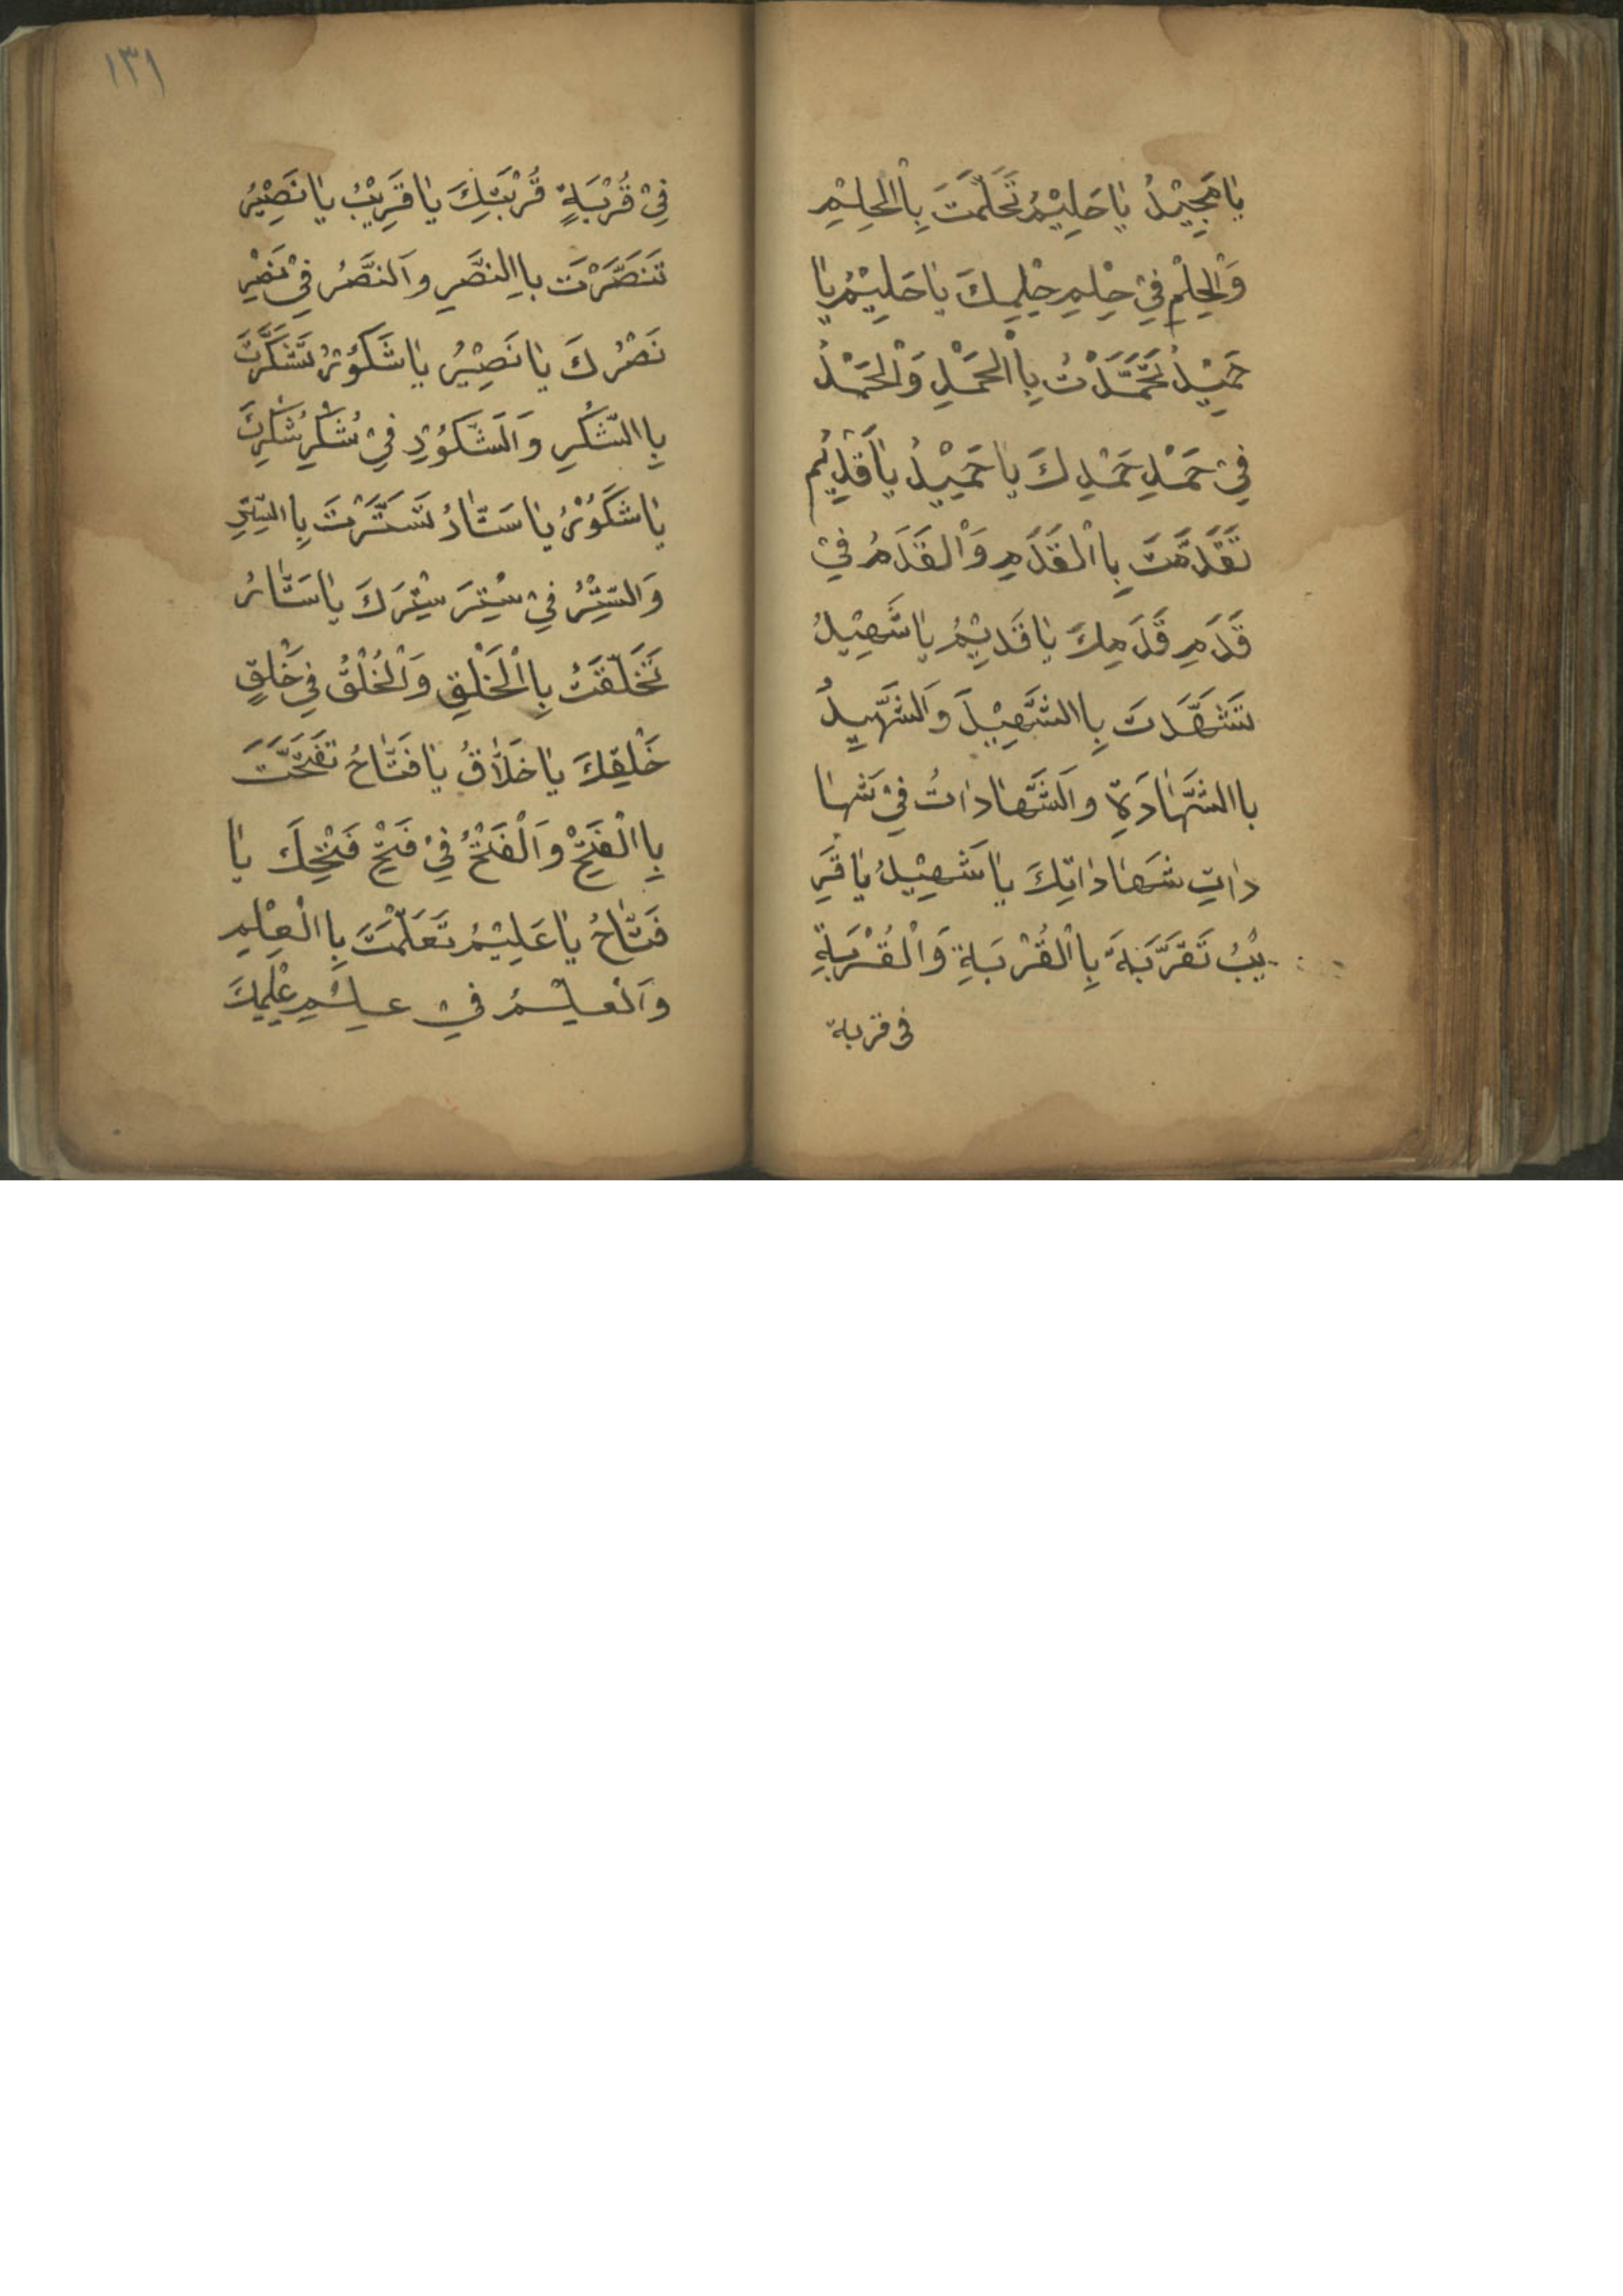 يَا مَجِيْدُ يَا حَلِيْمُ تَحَلَّمْتَ بِاالْحِلْمِ
وَالْحِلْمِ فِيْ حِلْمِ حِلْمِكَ يَا حَلِيْمُ يَا
حَمِيْدُ تَحَمَّدْتُ بِاالْحَمْدِ وَالْحَمْدُ
فِيْ حَمْدِ حَمْدِكَ يَا حَمِيْدُ يَا قَدِيْمُ
تَقَدَّمْتَ بِاالْقَدَمِ وَالْقَدَمُ فِيْ
قَدَمِ قَدَمِكَ يَا قَدِيْمُ يَا شَهِيْدُ
تَشَهَّدَتَ بِاالشَّهِيْدَ وَالشَّهِيدُ
باالشَّهَادَةِ وَالشَّهَادَاتُ فِيْ شَهَا
دَاتِ شَهَادَاتِكَ يَا شَهِيْدُ يَا قَرِ
يْبُ تَقَرَّبَةَ بِاالْقُرْبَةِ وَالْقُرْبَةِ
فى قربة
١٣١
فِيْ قُرْبَةٍ قُرْبَتِكَ يَا قَرِيْبُ يَا نَصِيْرُ
تَنَصَّرْتَ بِاالنَّصْرِ وَالنَّصْرُ فِيْ نَصْرِ
نَصْرُكَ يَا نَصِيْرُ يَا شَكُوْرُ تَشَكَّرْتَ
بِاالشُّكْرِ وَالشَّكُوْرِ فِيْ شُكْرِ شُكْرِكَ
يَا شَكُوْرُ يَا سَتَّارُ تَسَتَّرْتَ بِاالسِّتْرِ
وَالسِّتْرُ فِيْ سِتْرِ سِتْرِكَ يَا سَتَّارُ
تَخَلَّقْتُ بِاالْخَلْقِ وَالْخُلْقُ فِي خَلْقٍ
خَلْقِكَ يَا خَلَّاقُ يَا فَتَّاحُ تَفَتَّحْتَ
بِاالْفَتْحِ وَالْفَتْحُ فِيْ فَتْحِ فَتْحِكَ يَا
فَتَّاحُ يَا عَلِيْمُ تَعَلَّمْتَ بِاالْعِلْمِ
وَالْعِلْمُ فِيْ عِلْمِ عِلْمِكَ